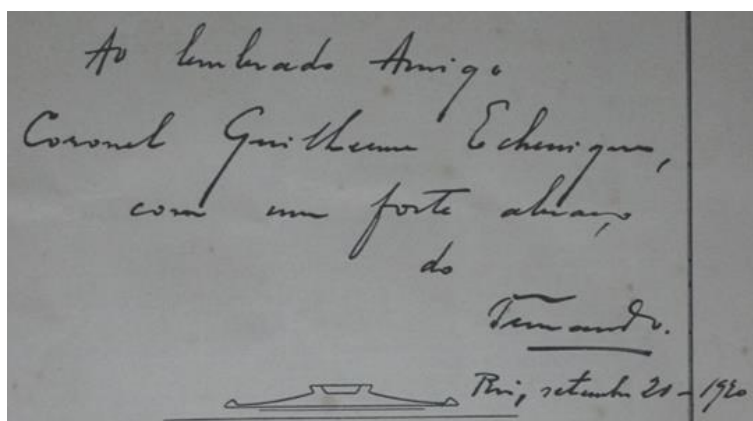 Ao lembrado Amigo
Coronel Guilherme Echenique,
com um forte abraço
do
Fernando.
Rio, setembro 20-1920